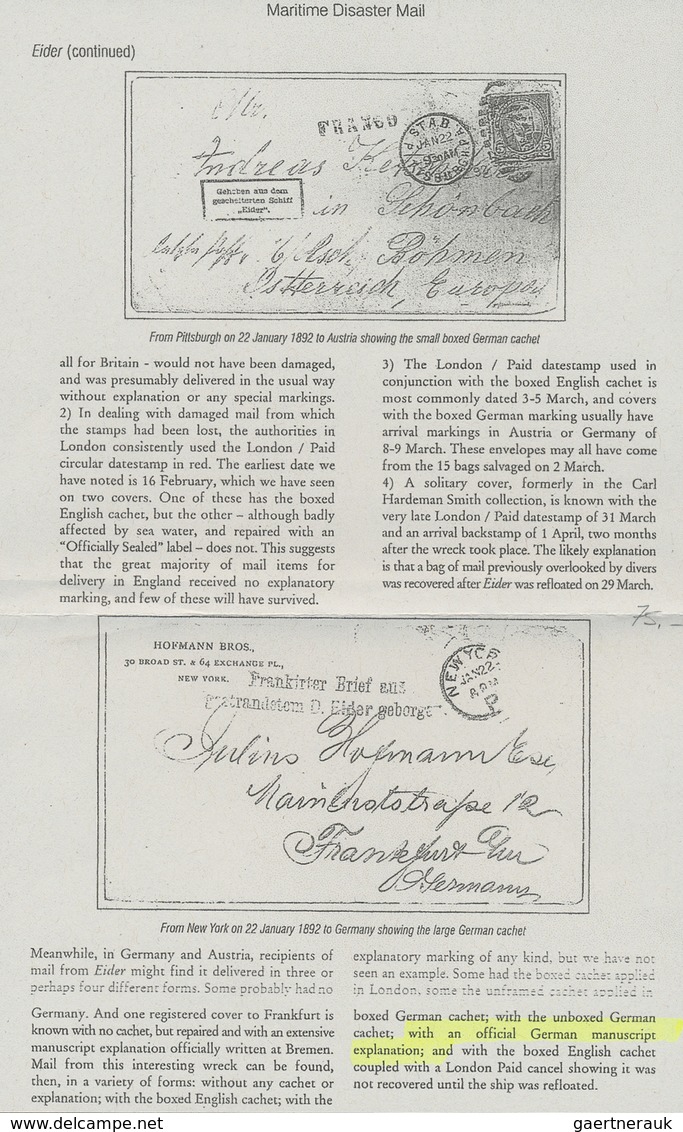 Maritime Disaster Mail
Eider (continued)
Mr.
FRANCO
STA. B.
JAN 22
930AM
PITTSBURGH, PA.
Andreas
Gehoben aus dem
gescheiterten Schiff
„Eider".
in Schönbach
b/Asch Böhmen
Östterreich, Europa
From Pittsburgh on 22 January 1892 to Austria showing the small boxed German cachet
all for Britain - would not have been damaged,
and was presumably delivered in the usual way
without explanation or any special markings.
2) In dealing with damaged mail from which
the stamps had been lost, the authorities in
London consistently used the London / Paid
circular datestamp in red. The earliest date we
have noted is 16 February, which we have seen
on two covers. One of these has the boxed
English cachet, but the other – although badly
affected by sea water, and repaired with an
“Officially Sealed” label – does not. This suggests
that the great majority of mail items for
delivery in England received no explanatory
marking, and few of these will have survived.
3) The London / Paid datestamp used in
conjunction with the boxed English cachet is
most commonly dated 3-5 March, and covers
with the boxed German marking usually have
arrival markings in Austria or Germany of
8-9 March. These envelopes may all have come
from the 15 bags salvaged on 2 March.
4) A solitary cover, formerly in the Carl
Hardeman Smith collection, is known with the
very late London / Paid datestamp of 31 March
and an arrival backstamp of 1 April, two months
after the wreck took place. The likely explanation
is that a bag of mail previously overlooked by divers
was recovered after Eider was refloated on 29 March.
75,-
HOFMANN BROS.,
30 BROAD ST. & 64 EXCHANGE PL.,
NEW YORK.
Frankirter Brief aus
gestrandetem D. Eider geborgen
NEW YORK
JAN 22
D
Julius Hofmann Esq,
12
Frankfurt
Germany
From New York on 22 January 1892 to Germany showing the large German cachet
Meanwhile, in Germany and Austria, recipients of
mail from Eider might find it delivered in three or
perhaps four different forms. Some probably had no
explanatory marking of any kind, but we have not
seen an example. Some had the boxed cachet applied
in London, some the unframed cachet applied in
Germany. And one registered cover to Frankfurt is
known with no cachet, but repaired and with an extensive
manuscript explanation officially written at Bremen.
Mail from this interesting wreck can be found,
then, in a variety of forms: without any cachet or
explanation; with the boxed English cachet; with the
boxed German cachet; with the unboxed German
cachet; with an official German manuscript
explanation; and with the boxed English cachet
coupled with a London Paid cancel showing it was
not recovered until the ship was refloated.
gaertnerauk